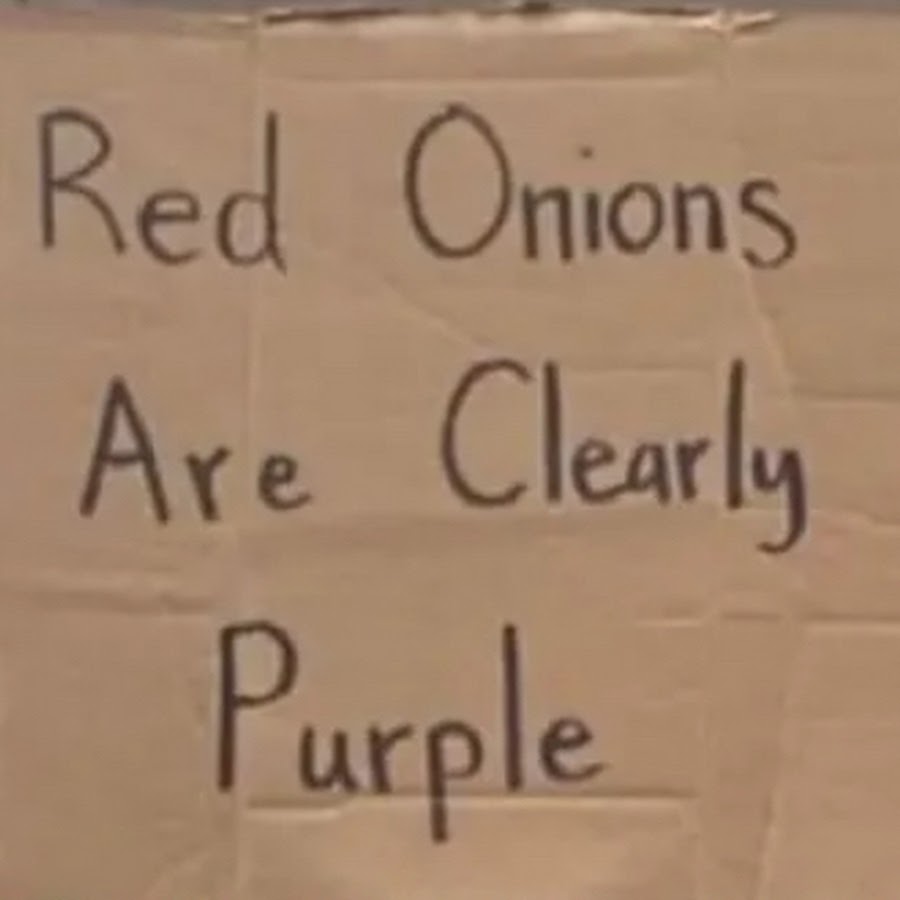 Red Onions
Are Clearly
Purple